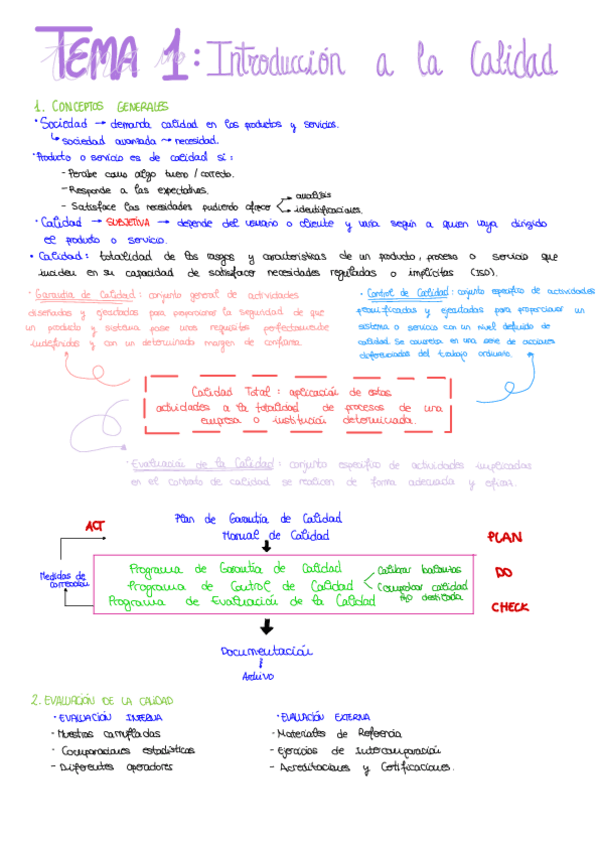 TEMA 1: Introducción a la Calidad
1. CONCEPTOS GENERALES
· Sociedad → demanda calidad en los productos y servicios.
↳ sociedad avanzada → necesidad.
· Producto o servicio es de calidad si:
- Percibe como algo bueno / correcto.
- Responde a las expectativas.
- Satisface las necesidades pudiendo ofrecer
→ análisis
→ identificaciones
· Calidad → SUBJETIVA → depende del usuario o cliente y varía según a quien vaya dirigido
el producto o servicio.
• Calidad: totalidad de los rasgos y características de un producto, proceso o servicio que
inciden en su capacidad de satisfacer necesidades reguladas o implícitas (ISO).
· Garantía de Calidad: conjunto general de actividades
diseñadas y ejecutadas para proporcionar la seguridad de que
un producto y sistema posee unos requisitos perfectamente
indefinidos y con un determinado margen de confianza
· Control de Calidad: conjunto específico de actividades
planificadas y ejecutadas para proporcionar un
sistema o servicio con un nivel definido de
calidad se concretan en una serie de acciones
diferenciadas del trabajo ordinario.
Calidad Total: aplicación de estas
actividades a la totalidad de procesos de una
empresa o institución determinada.
· Evaluación de la Calidad: conjunto específico de actividades implicadas
en el contexto de calidad se realicen de forma adecuada y eficaz.
Plan de Garantía de Calidad
Manual de Calidad
ACT
PLAN
Medidas de
corrección
Programa de Garantía de Calidad
Programa de Control de Calidad
Programa de Evaluación de la Calidad
Calibrar balanzas
Comprobar calidad
H₂O destilada
DO
CHECK
Documentación
Archivo
2. EVALUACIÓN DE LA CALIDAD
· EVALUACIÓN INTERNA
- Muestras camufladas
- Comparaciones estadísticas
- Diferentes operadores
· EVALUACIÓN EXTERNA
- Materiales de Referencia
- Ejercicios de Intercomparación
- Acreditaciones y Certificaciones.